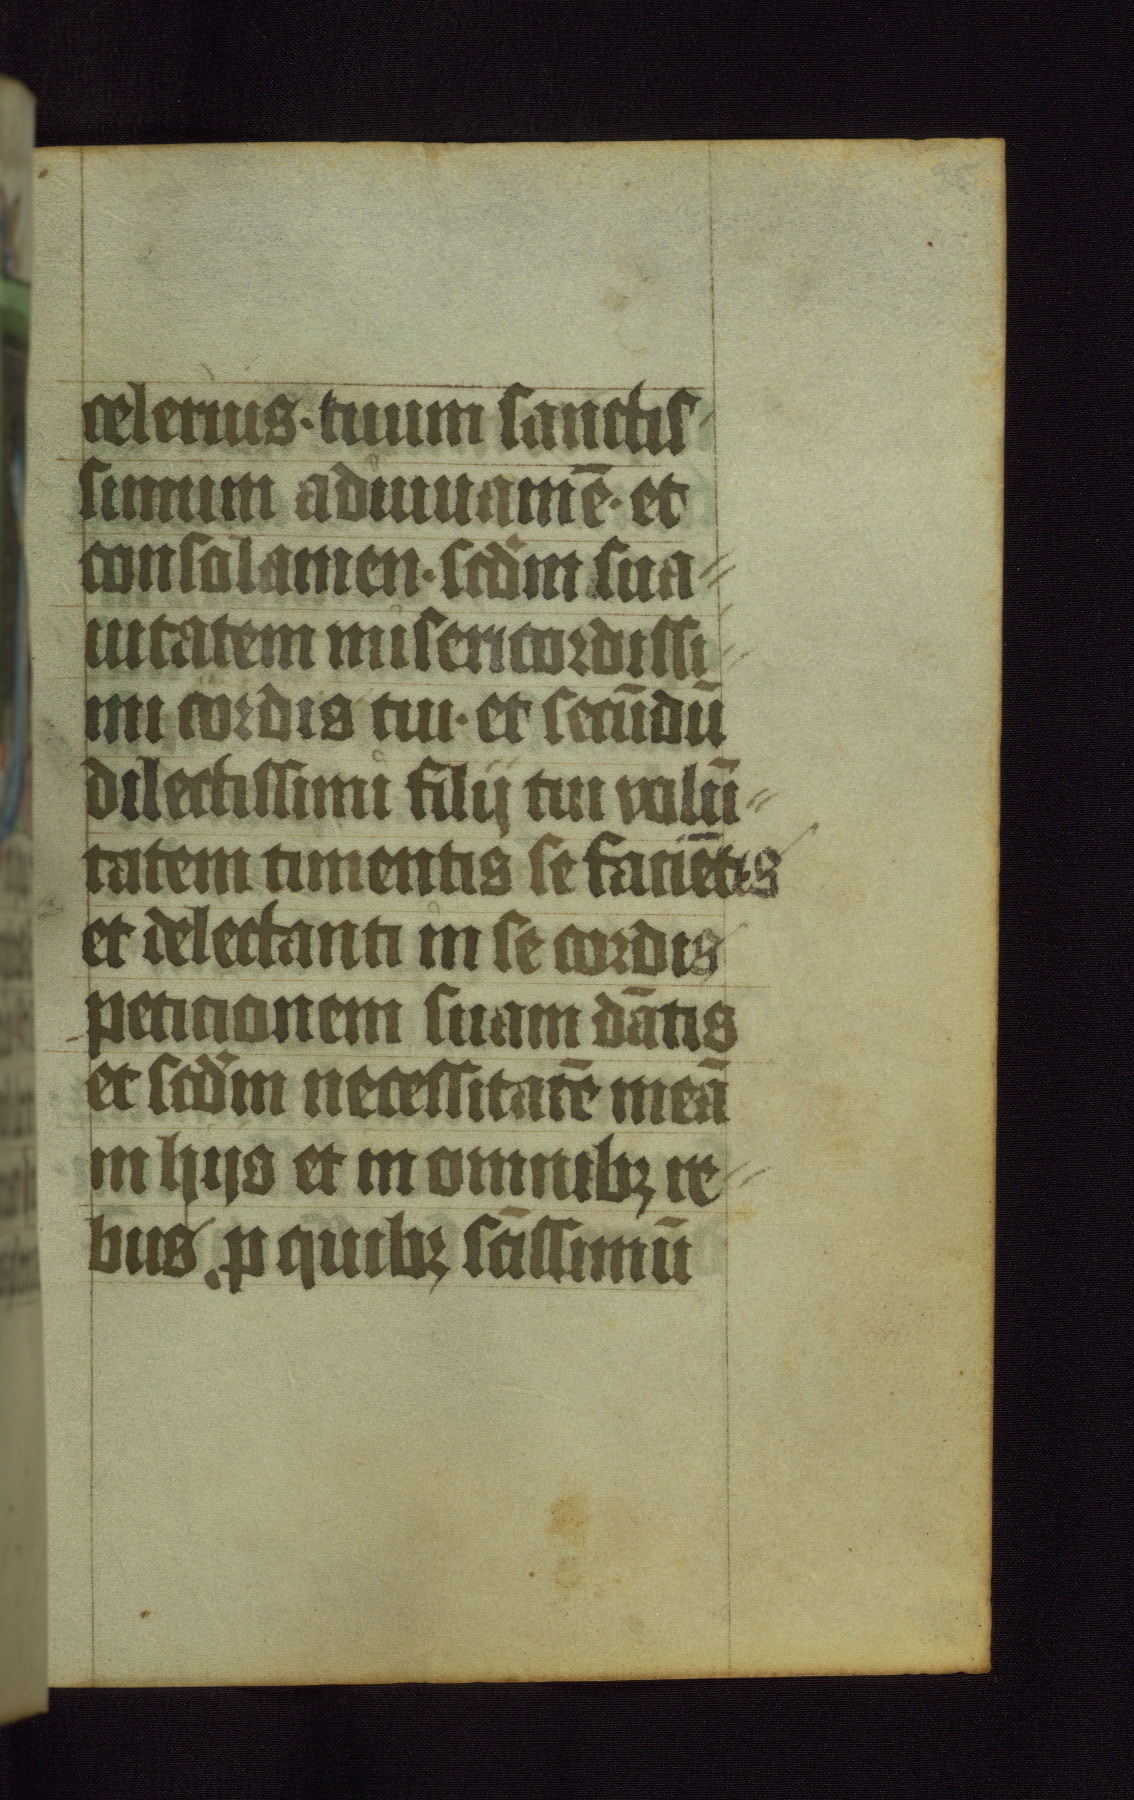 celerius · tuum sanctis
simum adiuuamē · et
consolamen · scd̄m sua
uitatem misericordissi
mi cordis tui · et secūdū
dilectissimi filij tui volū
tatem timentis se faciētis
et delectanti in se cordis
peticionem suam dātis
et scd̄m necessitatē meā
in hijs et in omnibꝫ re
bus . p quibꝫ sc̄issimū